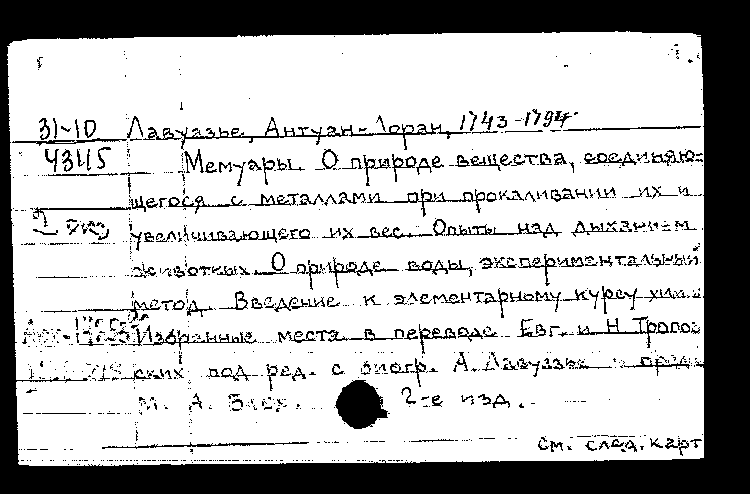 1.
31-10 Лавуазье, Антуан-Лоран, 1743-1794
43115 Мемуары. О природе вещества, соединяю-
щегося с металлами при прокаливании их и
2 экз увеличивающего их вес. Опыты над дыханием
животных. О природе воды, экспериментальный
метод. Введение к элементарному курсу хим.
Избранные места в переводе Евг. и Н Тропов
ских под ред. с биогр. А. Лавуазье и
М. А. Блох. 2-е изд.
См. след. карт